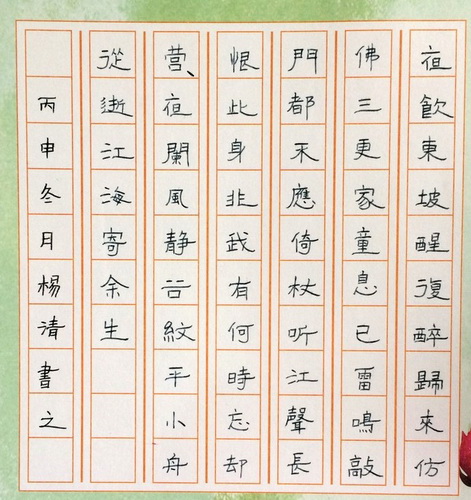 夜飲東坡醒復醉歸來仿
佛三更家童息已雷鳴敲
門都不應倚杖听江聲長
恨此身非我有何時忘却
营、夜闌風静谷紋平小舟
從逝江海寄余生
丙申冬月楊清書之